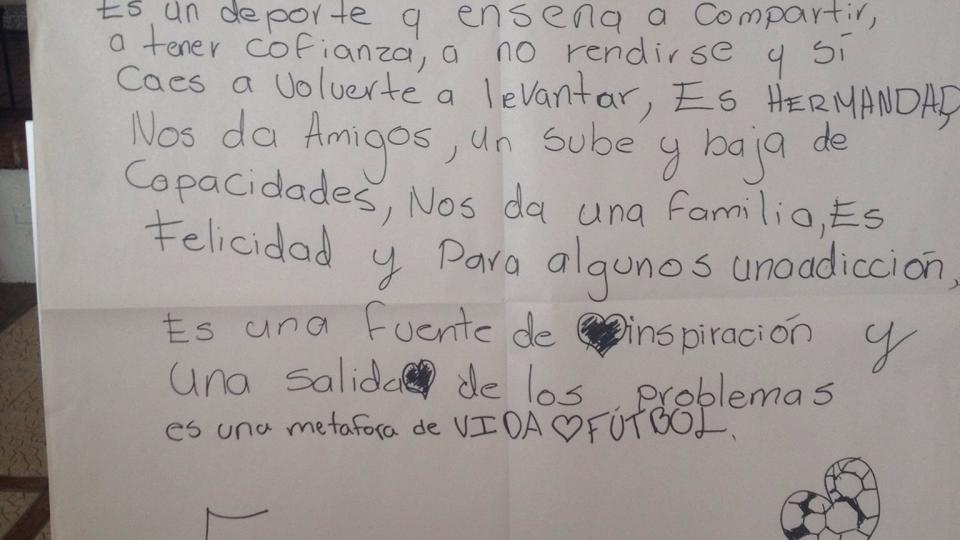 Es un deporte q enseña a compartir,
a tener cofianza, a no rendirse y si
Caes a Volverte a levantar, Es HERMANDAD,
Nos da Amigos, un sube y baja de
Capacidades, Nos da una familia, Es
Felicidad y Para algunos unaadicción,
Es una fuente de inspiración y
una salida de los problemas
es una metafora de VIDA ♡ FÚTBOL.